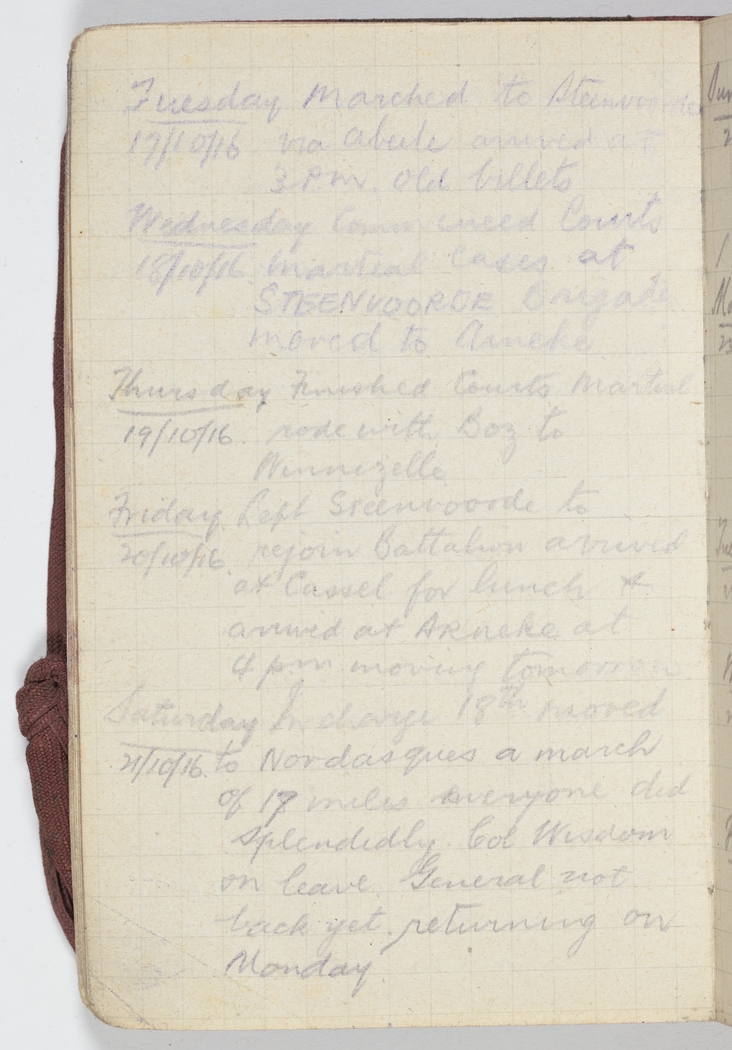 Tuesday Marched to Steenvoorde
17/10/16 via Abele arrived at
3 P.m. Old billets
Wednesday Commenced Courts
18/10/16 Martial Cases at
STEENVOORDE Brigade
moved to Arneke
Thursday Finished Courts Martial
19/10/16. rode with Boz to
Winnizelle
Friday Left Steenvoorde to
20/10/16 rejoin Battalion arrived
at Cassel for lunch &
arrived at ARneke at
4 pm moving tomorrow
Saturday In charge 18th moved
21/10/16. to Nordasques a march
of 17 miles everyone did
splendidly. Col Wisdom
on leave. General not
back yet. returning on
Monday.